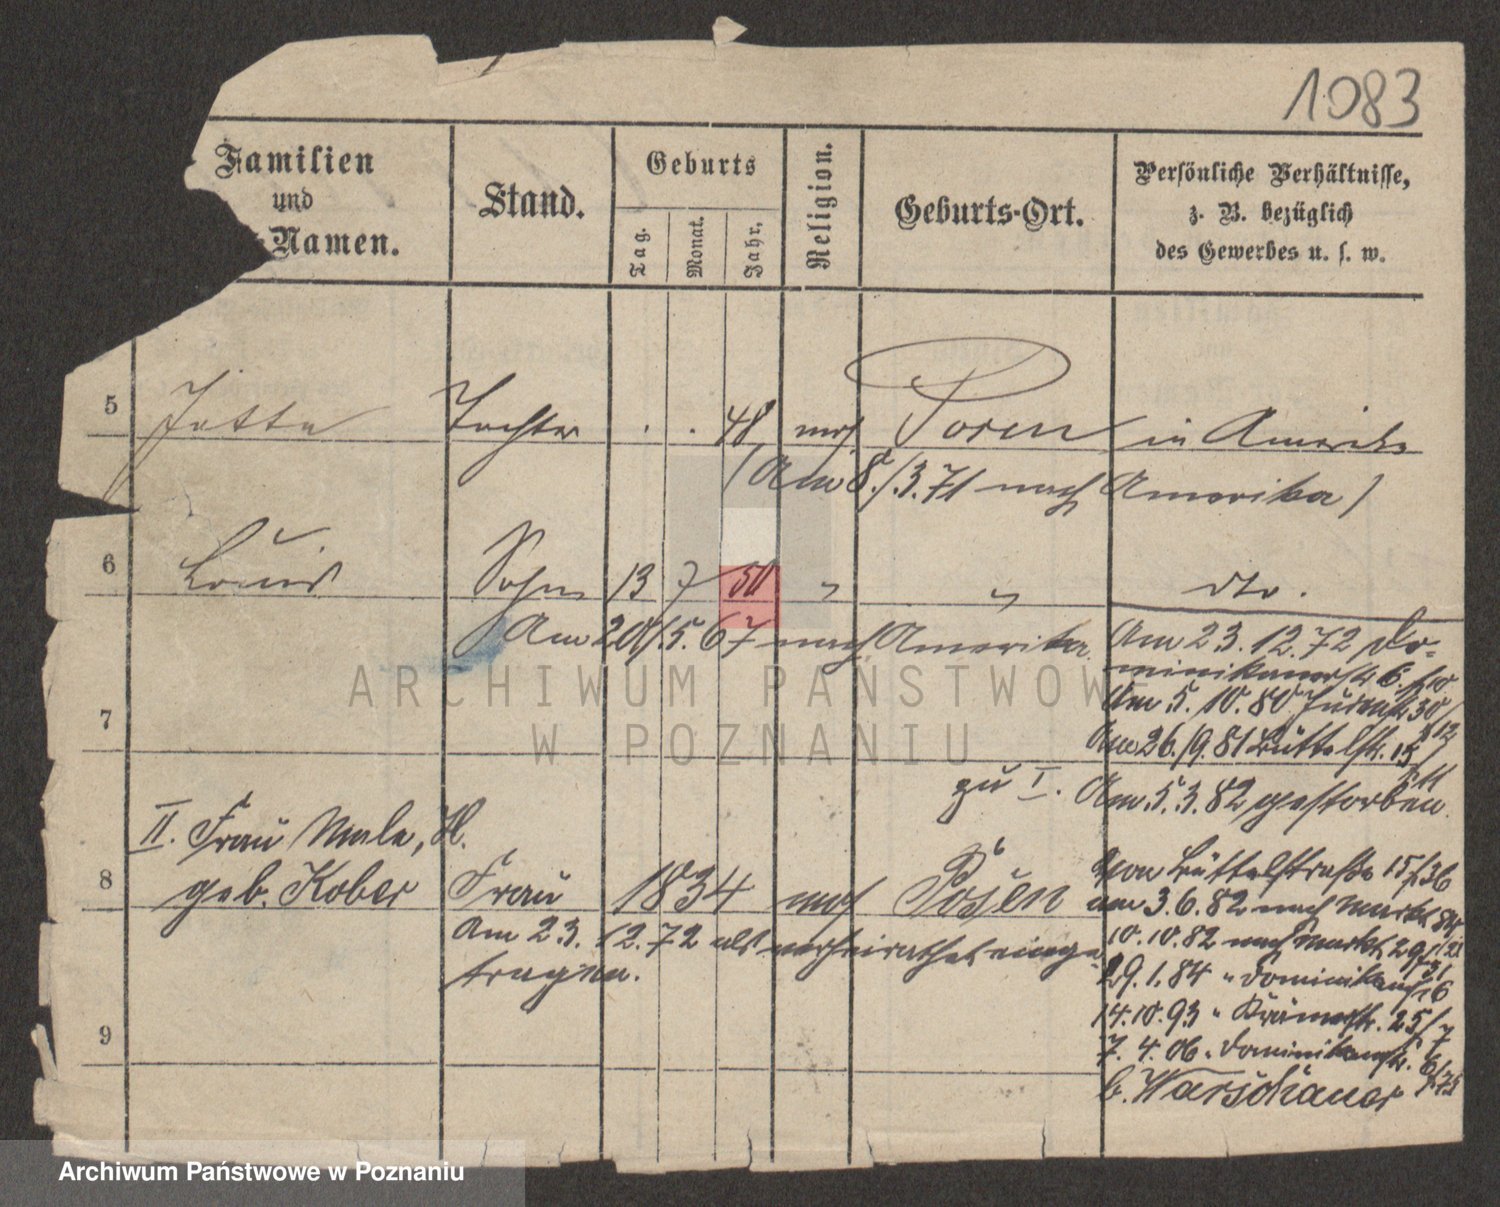 1083
Familien
und
-Namen.
Stand.
Geburts
Tag.
Monat.
Jahr,
Religion.
Geburts-Ort.
Persönliche Verhältnisse,
z. B. bezüglich
des Gewerbes u. s. w.
5 Jette Tochter . . 48 mos Posen in Amerika
(Am 8./3.71 nach Amerika)
6 Louis Sohn 13 7 50 " " dto.
Am 20/5.67 nach Amerika.
Am 23.12.72 Do-
minikanerstr 6
Am 5.10.80 Judenstr 30
7
Am 26./9.81 Büttelstr. 15
zu I. Am 5.3.82 gestorben.
II. Frau Male, H.
8 geb. Kober Frau 1834 mos Posen
Von Büttelstraße 15/36
am 3.6.82 nach Markt
Am 23.12.72 als verheirathet einge-
tragen.
10.10.82 nach Markt 29
29.1.84 " Dominikanerstr 6
14.10.93 " Krämerstr. 25/7
9
7.4.06 " Dominikanerstr. 6
b. Warschauer
ARCHIWUM PAŃSTWOWE
W POZNANIU
Archiwum Państwowe w Poznaniu